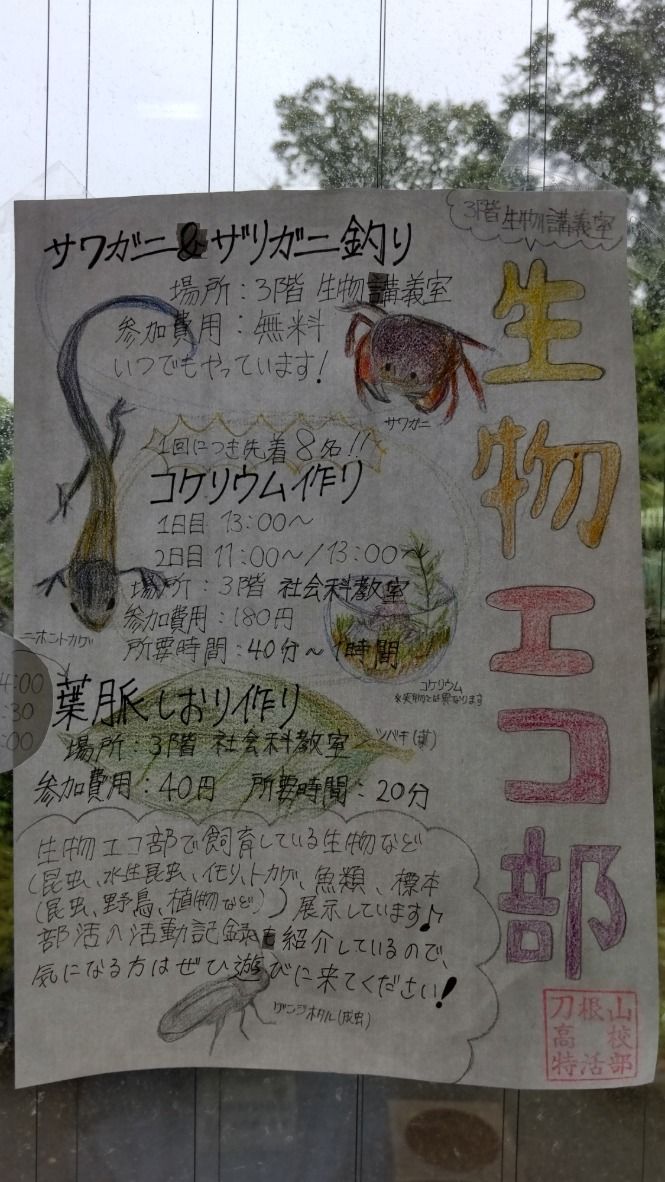 3階生物講義室
生物エコ部
サワガニ&ザリガニ釣り
場所:3階 生物講義室
参加費用:無料
いつでもやっています!
サワガニ
1回につき先着8名!!
コケリウム作り
1日目 13:00~
2日目 11:00~/13:00~
場所:3階 社会科教室
参加費用:180円
所要時間:40分~1時間
ニホントカゲ
コケリウム
※実物とは異なります
葉脈しおり作り
場所:3階 社会科教室
ツバキ(葉)
参加費用:40円 所要時間:20分
生物エコ部で飼育している生物など
(昆虫、水生昆虫、イモリ、トカゲ、魚類、標本
(昆虫、野鳥、植物など))展示しています♪
部活の活動記録も紹介しているので、
気になる方はぜひ遊びに来てください!
ゲンジボタル(成虫)
刀根山
高校
特活部
4:00
:30
:00